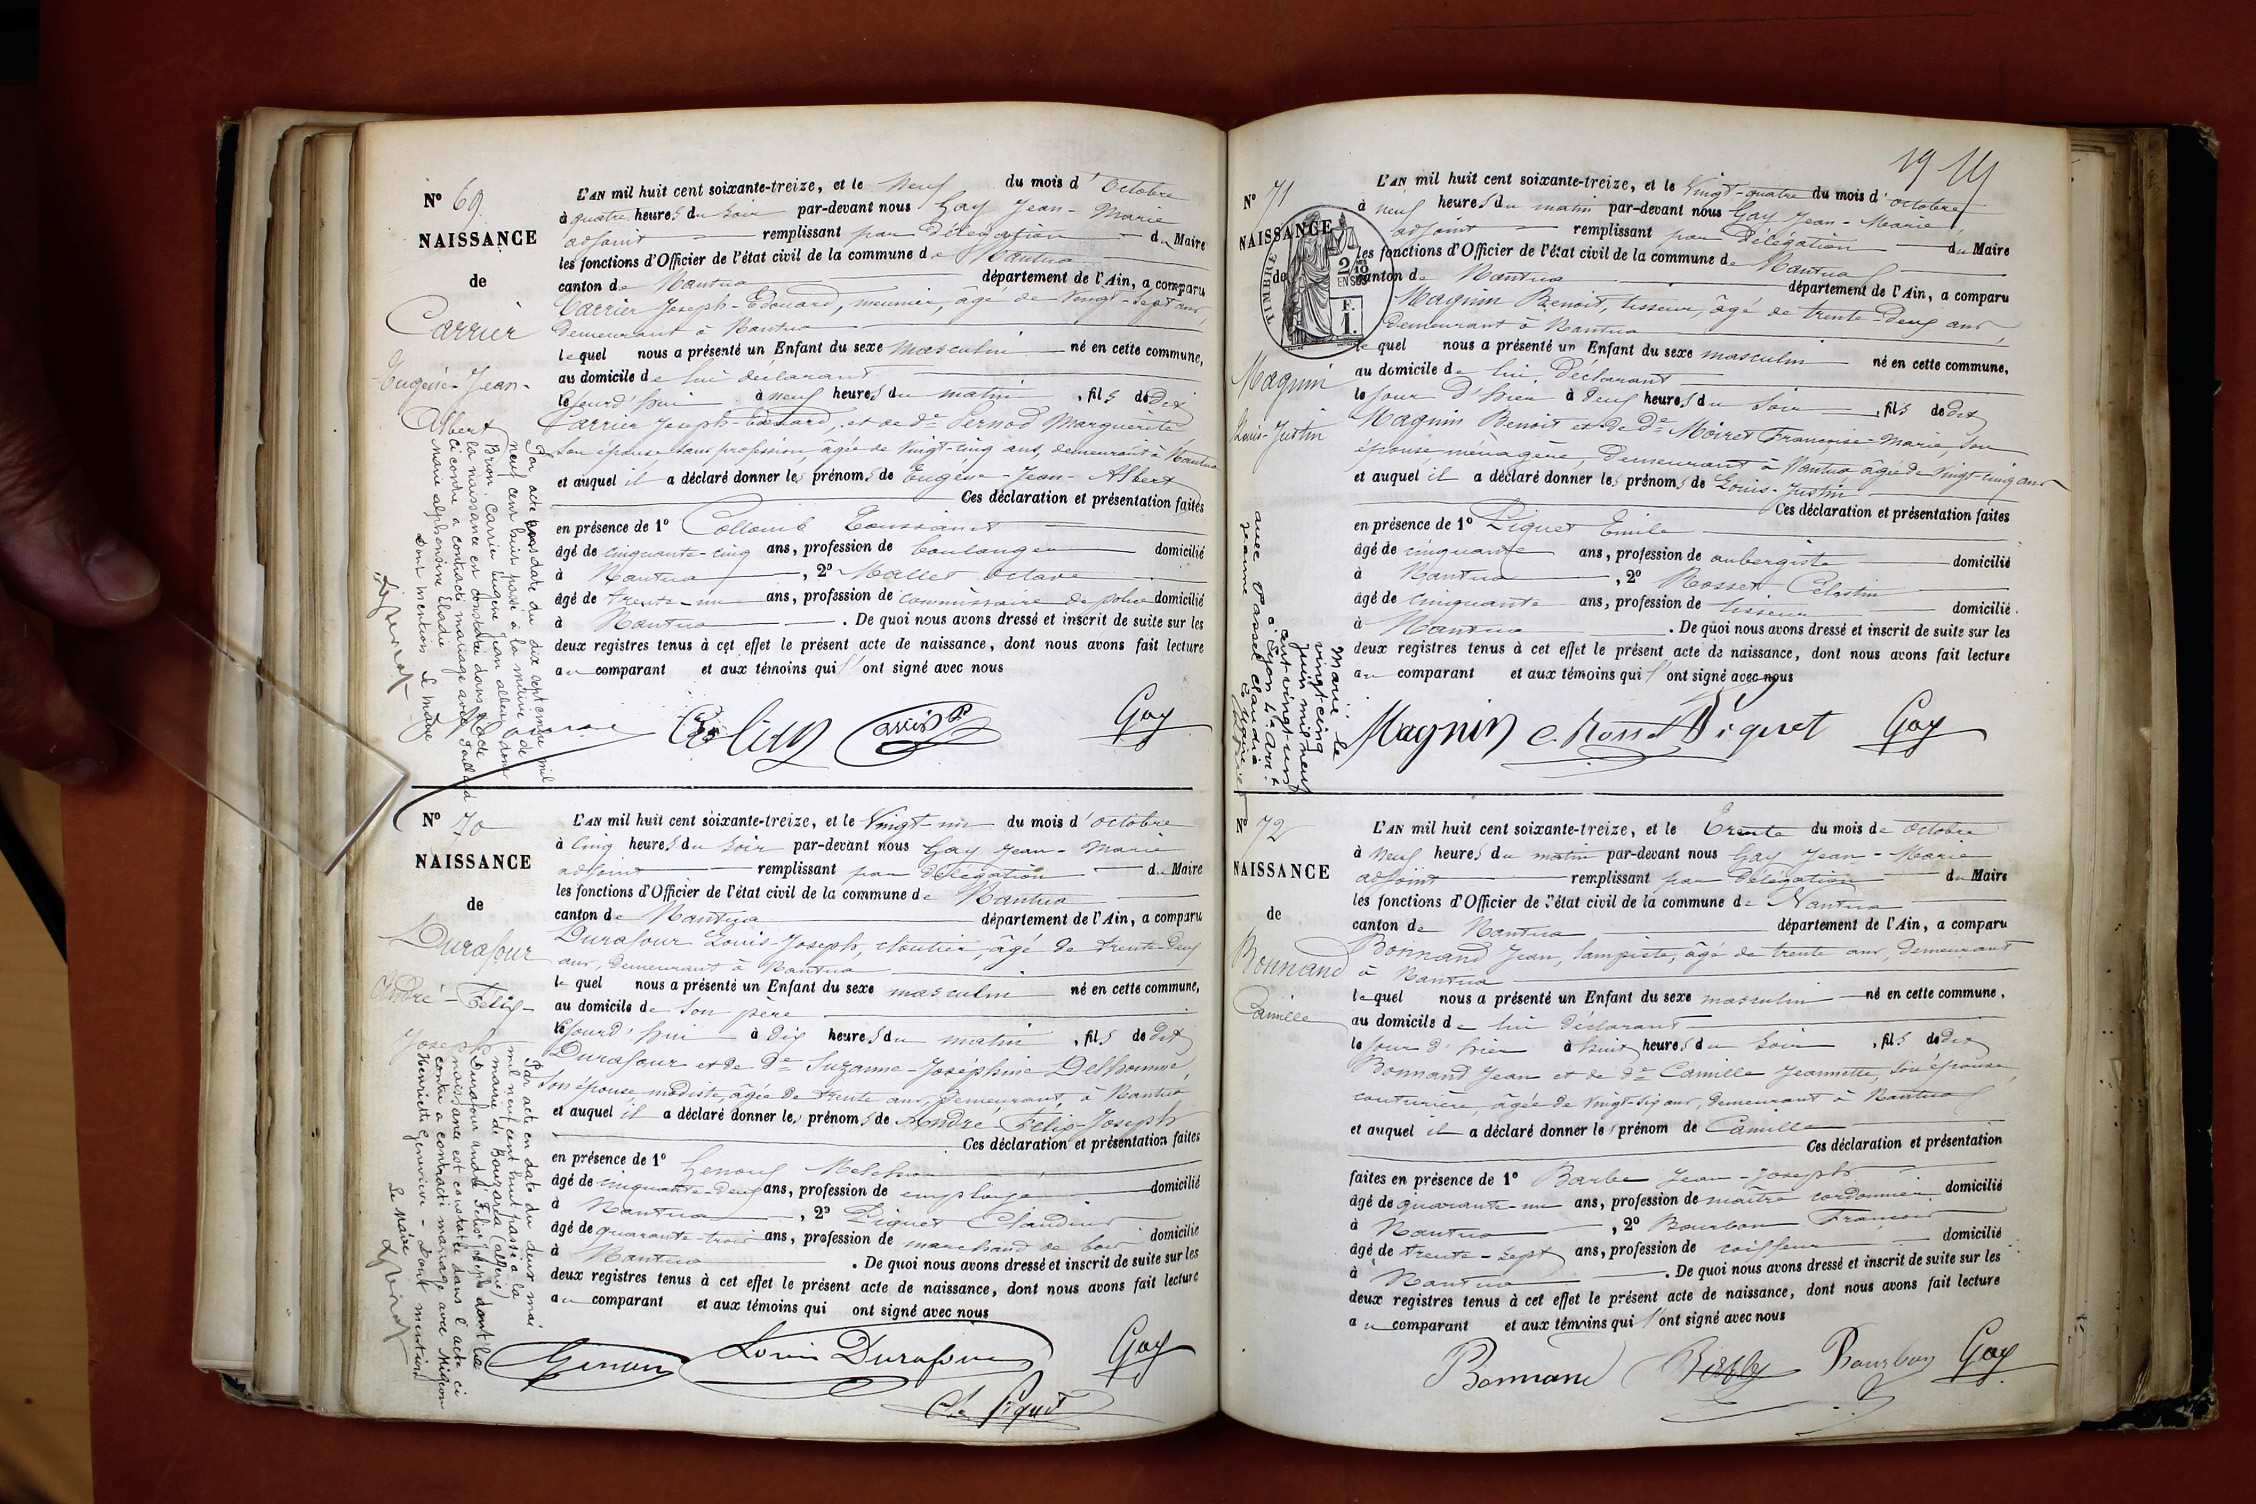 N° 69
NAISSANCE
de
Carrier
Eugène-Jean-
Albert
L'AN mil huit cent soixante-treize, et le Neuf du mois d'octobre
à quatre heures du soir par-devant nous Gay Jean-Marie
adjoint remplissant par délégation du Maire
les fonctions d'Officier de l'état civil de la commune de Nantua
canton de Nantua département de l'Ain, a comparu
Carrier Joseph-Edouard, meunier, âgé de Vingt-sept ans,
demeurant à Nantua
lequel nous a présenté un Enfant du sexe masculin né en cette commune,
au domicile de lui déclarant
le jourd'hui à neuf heures du matin, fils de dit
Carrier Joseph-Edouard, et de De Pernod Marguerite
son épouse sans profession, âgée de Vingt-cinq ans, demeurant à Nantua
et auquel il a déclaré donner les prénoms de Eugène-Jean-Albert
Ces déclaration et présentation faites
en présence de 1° Colloud Toussaint
âgé de cinquante-cinq ans, profession de boulanger domicilié
à Nantua, 2° Mallet Octave
âgé de trente-un ans, profession de commissaire de police domicilié
à Nantua. De quoi nous avons dressé et inscrit de suite sur les
deux registres tenus à cet effet le présent acte de naissance, dont nous avons fait lecture
au comparant et aux témoins qui l'ont signé avec nous
Gay
Par acte en date du dix septembre mil
neuf cent huit passé à la mairie de
Bron, Carrier Eugène Jean Albert dont
la naissance est constatée dans l'acte
ci contre a contracté mariage avec
Marie Alphonsine Eladie
Dont mention Le Maire
N° 70
NAISSANCE
de
Durafour
André-Félix-
Joseph
L'AN mil huit cent soixante-treize, et le Vingt-un du mois d'octobre
à cinq heures du soir par-devant nous Gay Jean-Marie
adjoint remplissant par délégation du Maire
les fonctions d'Officier de l'état civil de la commune de Nantua
canton de Nantua département de l'Ain, a comparu
Durafour Louis-Joseph, cloutier, âgé de trente-deux
ans, demeurant à Nantua
lequel nous a présenté un Enfant du sexe masculin né en cette commune,
au domicile de son père
le jourd'hui à dix heures du matin, fils de dit
Durafour et de De Suzanne-Joséphine Delhomme,
son épouse, modiste, âgée de trente ans, demeurant à Nantua
et auquel il a déclaré donner les prénoms de André-Félix-Joseph
Ces déclaration et présentation faites
en présence de 1° Genoud Melchior
âgé de cinquante-deux ans, profession de employé domicilié
à Nantua, 2° Piquet Claudius
âgé de quarante-trois ans, profession de marchand de bois domicilié
à Nantua. De quoi nous avons dressé et inscrit de suite sur les
deux registres tenus à cet effet le présent acte de naissance, dont nous avons fait lecture
au comparant et aux témoins qui ont signé avec nous
Louis Durafour Gay
Cl. Piquet
Par acte en date du deux mai
mil neuf cent huit passé à la
mairie de Bouzaréa (Algérie)
Durafour André Félix Joseph dont la
naissance est constatée dans l'acte ci
contre a contracté mariage avec Mignon
Henriette Geneviève - Dont mention
Le Maire
19
N° 71
NAISSANCE
de
TIMBRE
2/10
EN SUS
F.
1.
Magnin
Louis-Justin
L'AN mil huit cent soixante-treize, et le Vingt-quatre du mois d'octobre
à neuf heures du matin par-devant nous Gay Jean-Marie
adjoint remplissant par délégation du Maire
les fonctions d'Officier de l'état civil de la commune de Nantua
canton de Nantua département de l'Ain, a comparu
Magnin Benoit, tisseur, âgé de trente-deux ans
demeurant à Nantua
lequel nous a présenté un Enfant du sexe masculin né en cette commune,
au domicile de lui déclarant
le jour d'hier à deux heures du soir, fils de dit
Magnin Benoit et de De Moiret Françoise-Marie, son
épouse ménagère, demeurant à Nantua âgée de Vingt-cinq ans
et auquel il a déclaré donner les prénoms de Louis-Justin
Ces déclaration et présentation faites
en présence de 1° Piquet Emile
âgé de cinquante ans, profession de aubergiste domicilié
à Nantua, 2° Rosset Célestin
âgé de cinquante ans, profession de tisseur domicilié
à Nantua. De quoi nous avons dressé et inscrit de suite sur les
deux registres tenus à cet effet le présent acte de naissance, dont nous avons fait lecture
au comparant et aux témoins qui l'ont signé avec nous
Magnin C. Rosset Piquet Gay
Marié le
vingt-cinq
juin mil neuf
cent vingt-un
à Lyon 4e arrt
avec Passet Claudia
Jeanne Eugénie
N° 72
NAISSANCE
de
Bonnand
Camille
L'AN mil huit cent soixante-treize, et le Trente du mois de octobre
à neuf heures du matin par-devant nous Gay Jean-Marie
adjoint remplissant par délégation du Maire
les fonctions d'Officier de l'état civil de la commune de Nantua
canton de Nantua département de l'Ain, a comparu
Bonnand Jean, lampiste, âgé de trente ans, demeurant
à Nantua
lequel nous a présenté un Enfant du sexe masculin né en cette commune,
au domicile de lui déclarant
le jour d'hier à huit heures du soir, fils de dit
Bonnand Jean et de De Camille Jeannette, son épouse,
couturière, âgée de Vingt-six ans, demeurant à Nantua
et auquel il a déclaré donner le prénom de Camille
Ces déclaration et présentation
faites en présence de 1° Barbe Jean-Joseph
âgé de quarante-un ans, profession de maître cordonnier domicilié
à Nantua, 2° Bourbon François
âgé de trente-sept ans, profession de coiffeur domicilié
à Nantua. De quoi nous avons dressé et inscrit de suite sur les
deux registres tenus à cet effet le présent acte de naissance, dont nous avons fait lecture
au comparant et aux témoins qui l'ont signé avec nous
Bonnand Bourbon Gay